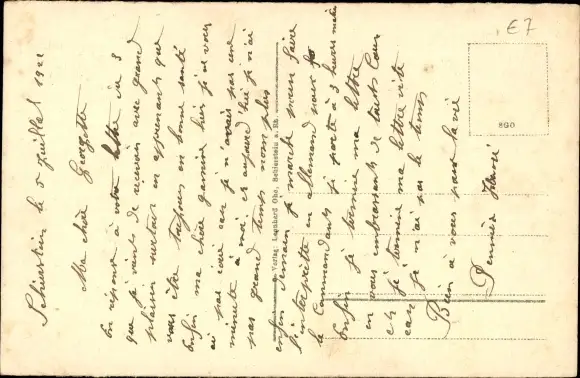 Schierstein le 5 Juillet 1921
Ma chère Georgette
En réponse à votre lettre du 3
que je viens de recevoir avec grand
plaisir surtout en apprenant que
vous êtes toujours en bonne santé
Enfin ma chère gamine hier je ne vous
ai pas écrit car je n'avais pas une
minute à moi et aujourd'hui je n'ai
pas grand temps non plus
enfin demain je marche pour faire
l'interprète en allemand pour
le Commandant je parte à 3 heures matin
Enfin je termine ma lettre
en vous embrassant de tout cœur
et je termine ma lettre vite
car je n'ai pas le temps
Bien à vous pour la vie
Verlag: Leonhard Ohe, Schierstein a. Rh.
890
E7